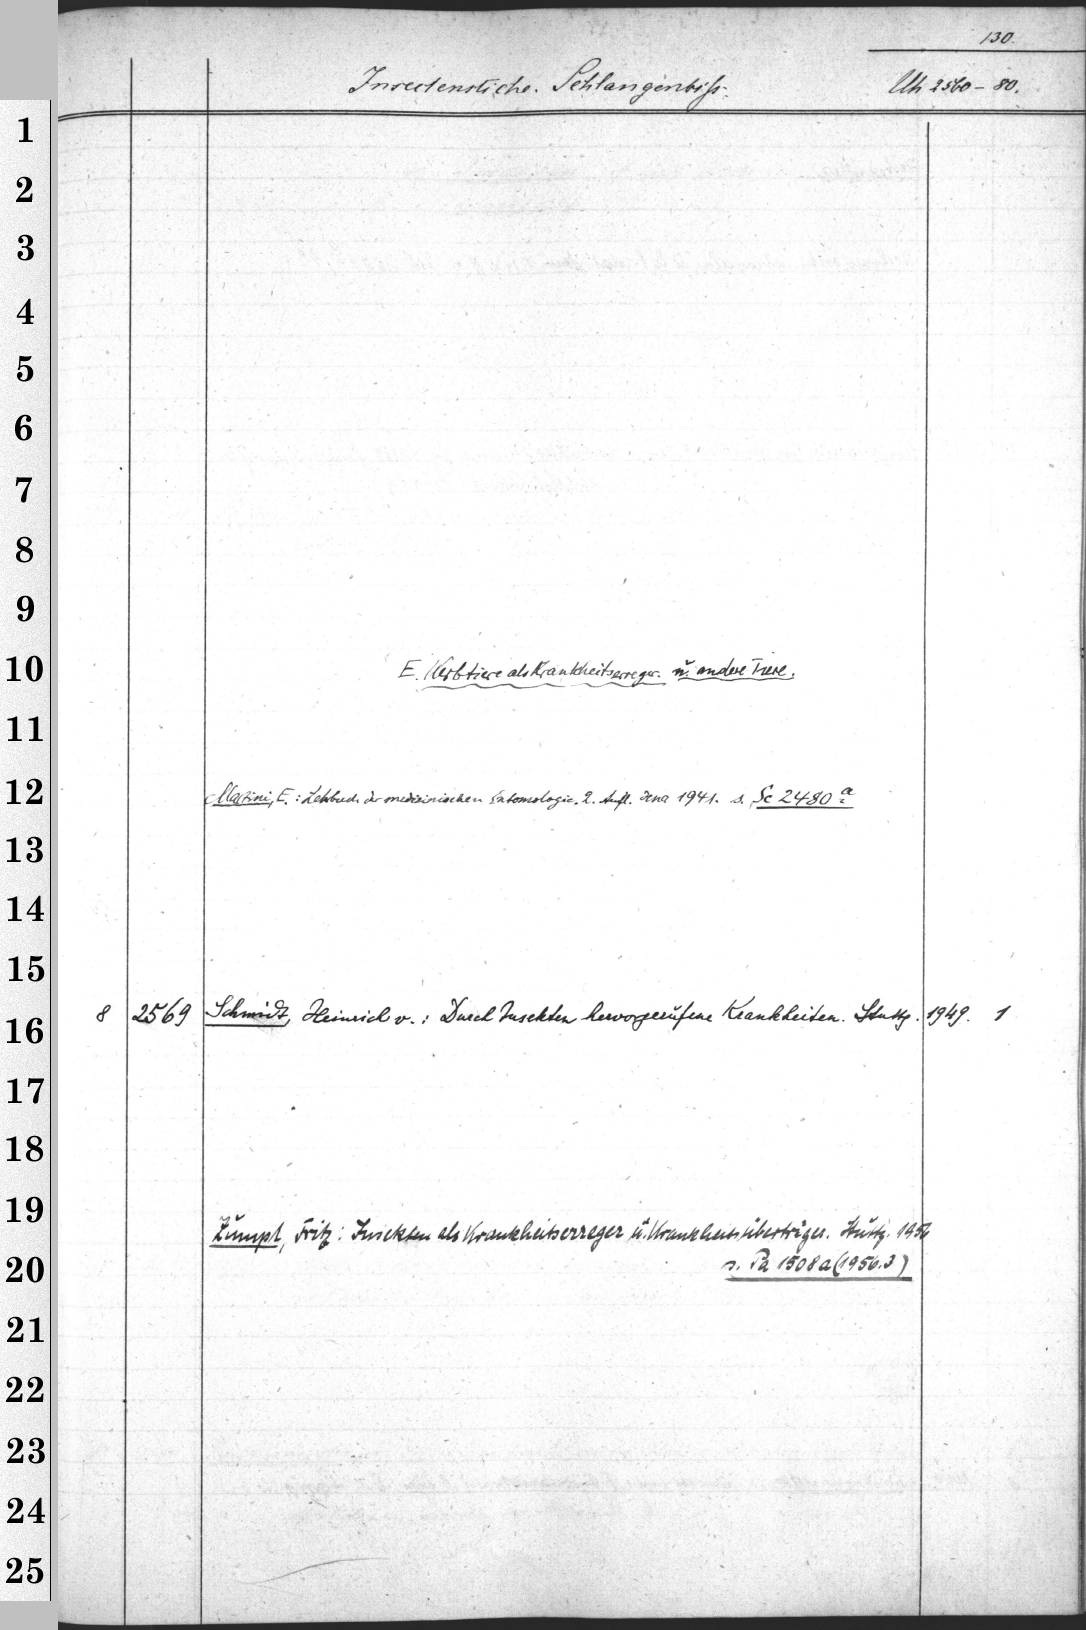 130.
Insectenstiche. Schlangenbiß. Uh 2560-80.
1
2
3
4
5
6
7
8
9
10 E. Kerbtiere als Krankheitserreger. u. andere Tiere.
11
12 Martini, E.: Lehrbuch der medizinischen Entomologie. 2. Aufl. Jena 1941. s. Sc 2480 a
13
14
15
16 8 2569 Schmidt, Heinrich v.: Durch Insekten hervorgerufene Krankheiten. Stuttg. 1949. 1
17
18
19 Zumpt, Fritz: Insekten als Krankheitserreger u. Krankheitsüberträger. Stuttg. 1956
20 s. Pa 1508a (1956.3)
21
22
23
24
25